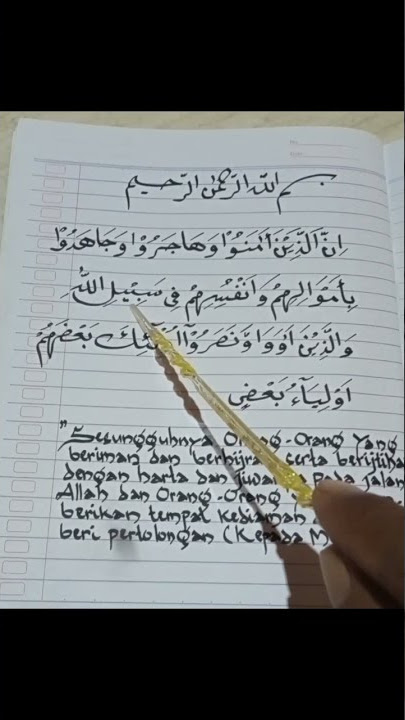 بسم الله الرحمن الرحيم
اِنَّ الَّذِيْنَ اٰمَنُوْا وَهَاجَرُوْا وَجَاهَدُوْا
بِاَمْوَالِهِمْ وَاَنْفُسِهِمْ فِيْ سَبِيْلِ اللّٰهِ
وَالَّذِيْنَ اٰوَوْا وَنَصَرُوْٓا بَعْضُهُمْ
اَوْلِيَاۤءُ بَعْضٍ
"Sesungguhnya Orang-Orang Yang
beriman dan berhijra serta berijtiha
dengan harta dan Pada Jalan
Allah dan Orang-Orang
berikan tempat Kediaman
beri pertolongan (Kepada M